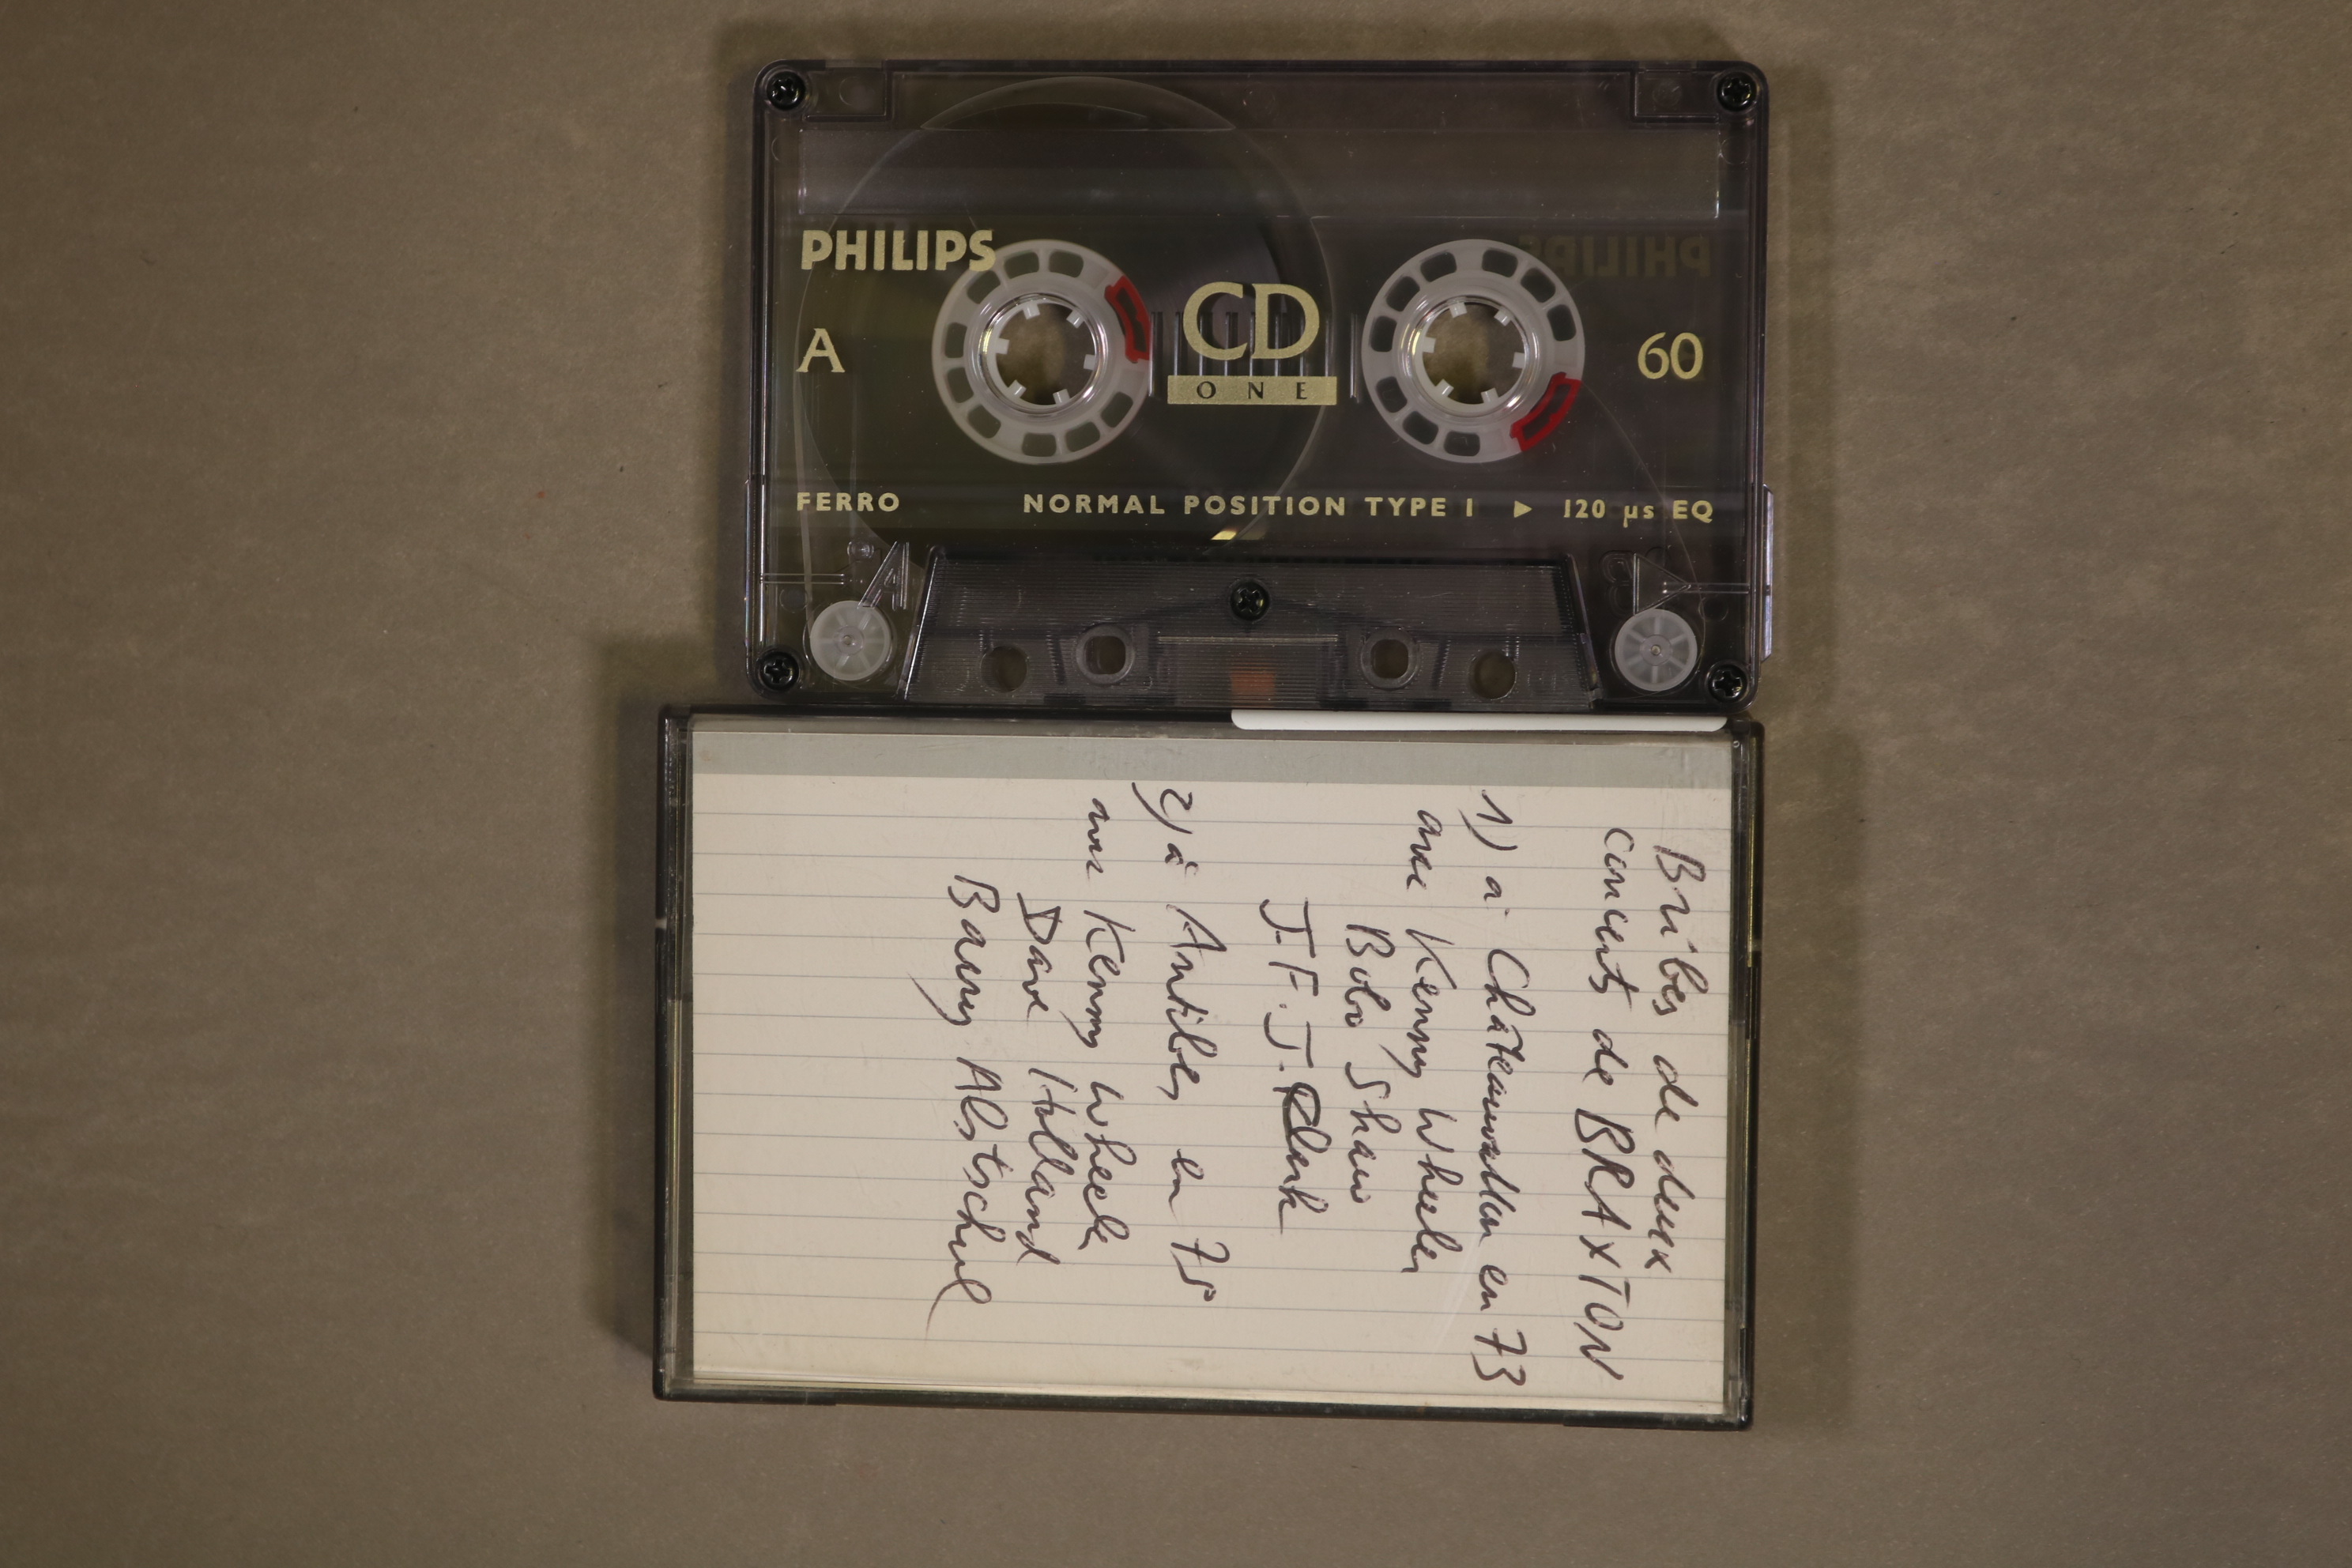 PHILIPS
A
CD
ONE
60
FERRO
NORMAL POSITION TYPE I ▶ 120 µs EQ
A
B
Bribes de deux
concerts de BRAXTON
1) à Châteauvallon en 73
avec Kenny Wheeler
Bobo Shaw
J-F. J. Clark
2) à Antibes en 75
avec Kenny Wheeler
Dave Holland
Barry Alstschul